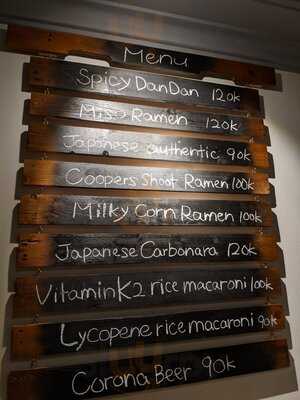 Menu
Spicy DanDan 120k
Miso Ramen 120k
Japanese authentic 90k
Coopers Shoot Ramen 100k
Milky Corn Ramen 100k
Japanese Carbonara 120k
Vitamin K2 rice macaroni 100k
Lycopene rice macaroni 90k
Corona Beer 90k